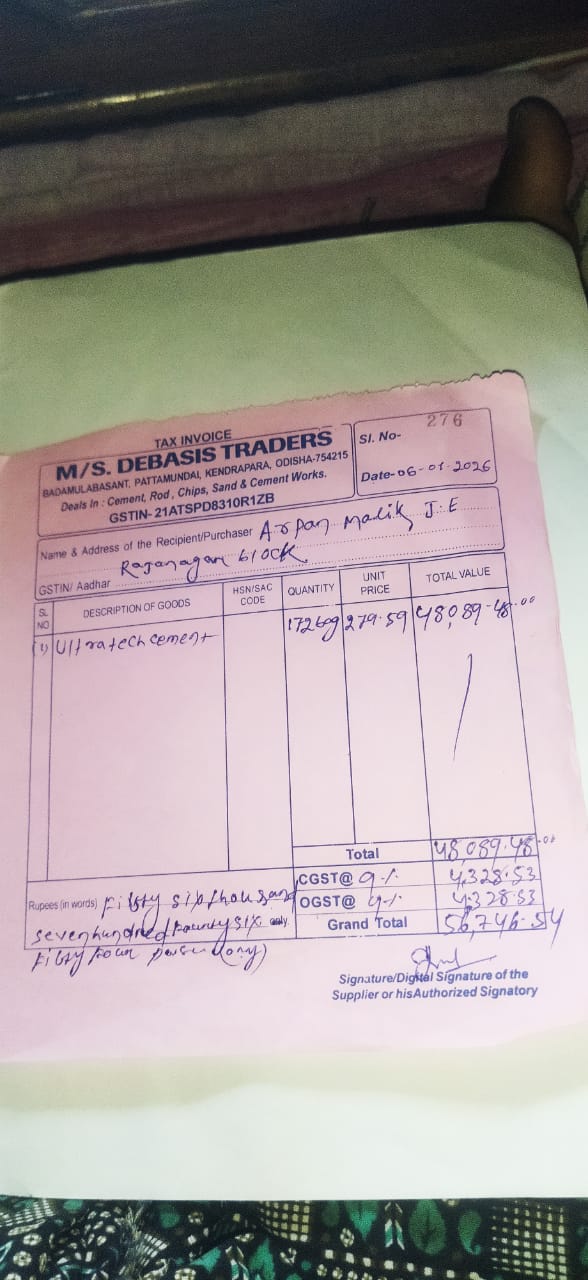 TAX INVOICE
M/S. DEBASIS TRADERS
BADAMULABASANT, PATTAMUNDAI, KENDRAPARA, ODISHA-754215
Deals in : Cement, Rod, Chips, Sand & Cement Works.
GSTIN- 21ATSPD8310R1ZB
Sl. No- 276
Date- 06-01-2026
Name & Address of the Recipient/Purchaser Arpan Malik J.E
Rajanagar block
GSTIN/ Aadhar
SL NO DESCRIPTION OF GOODS HSN/SAC CODE QUANTITY UNIT PRICE TOTAL VALUE
(1) Ultratech cement 172 279.59 48,089.48
Total 48,089.48
CGST@ 9% 4,328.53
OGST@ 9% 4,328.53
Grand Total 56,746.54
Rupees (in words) Fifty six thousand
seven hundred fourty six only.
fifty four (only)
Signature/Digital Signature of the
Supplier or his Authorized Signatory